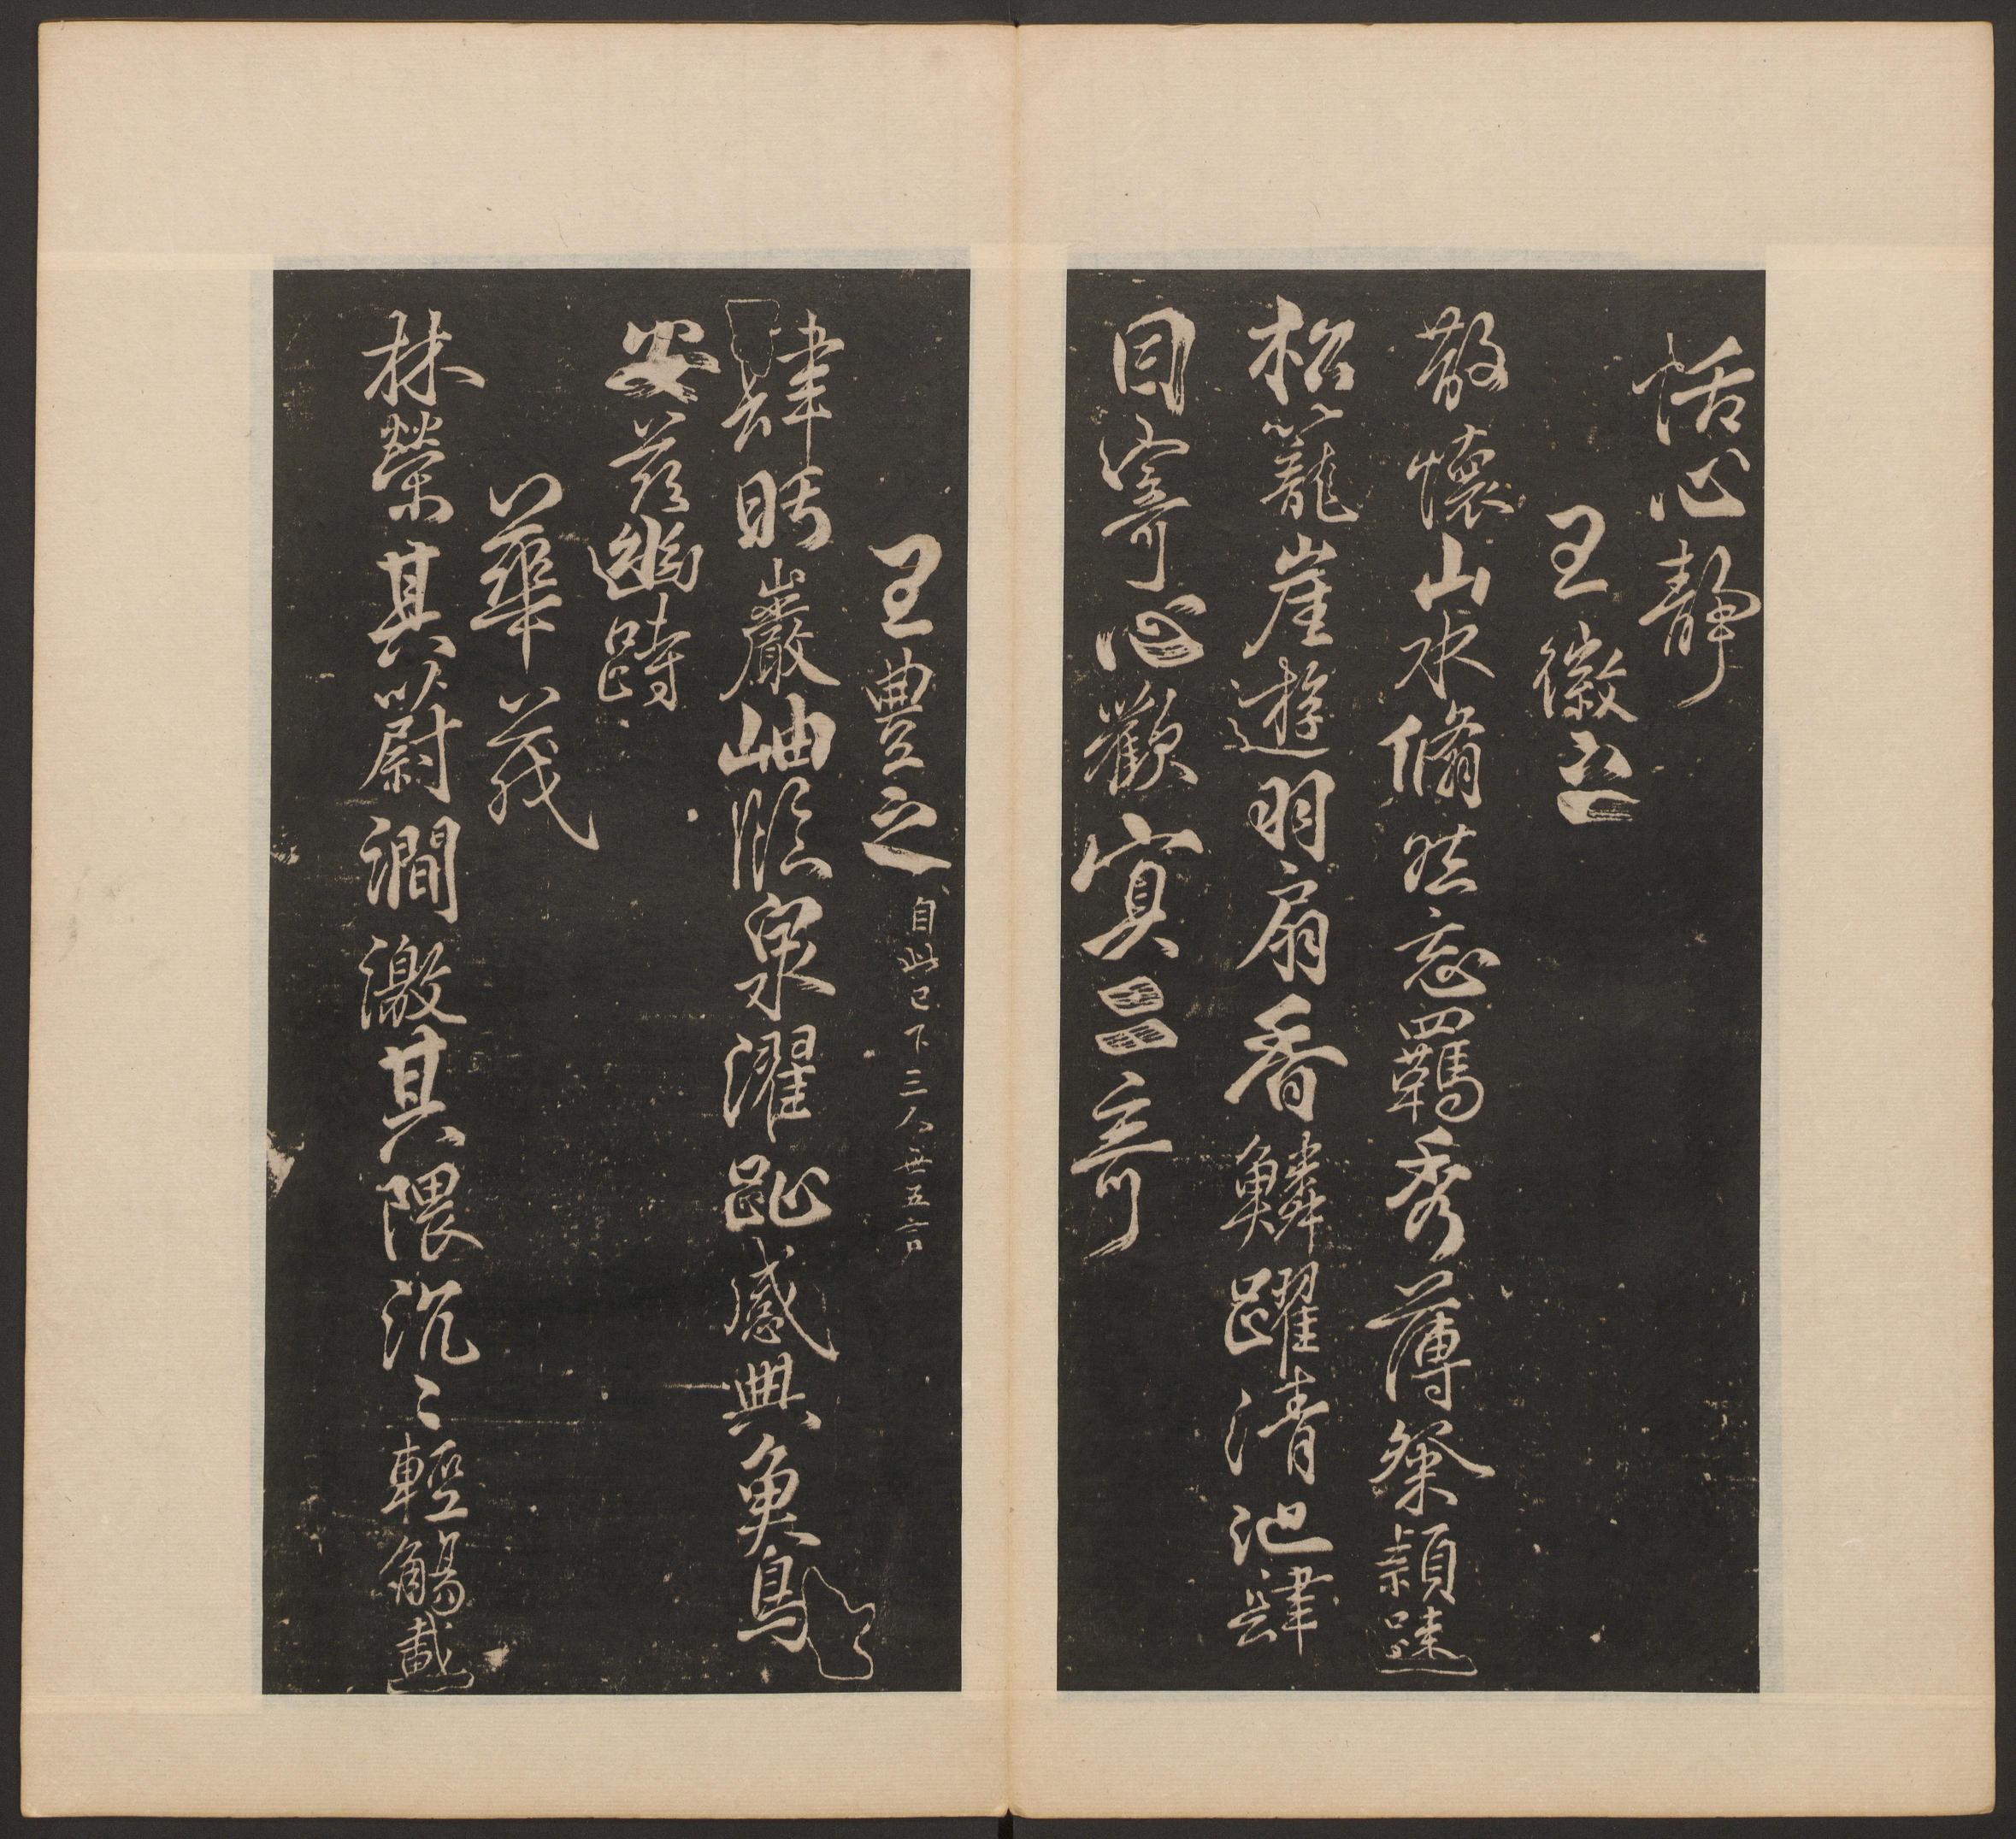 恬心靜
王徽之
散懷山水翛然忘羈秀薄粲穎踈
松籠崖遊羽扇香鱗躍清池肆
目寄心歡冥二奇
王豐之自此已下三人無五言
肆眄巖岫臨泉濯趾感興魚鳥
安茲幽跱
華茂
林榮其蔚澗激其隈汎〻輕觴載